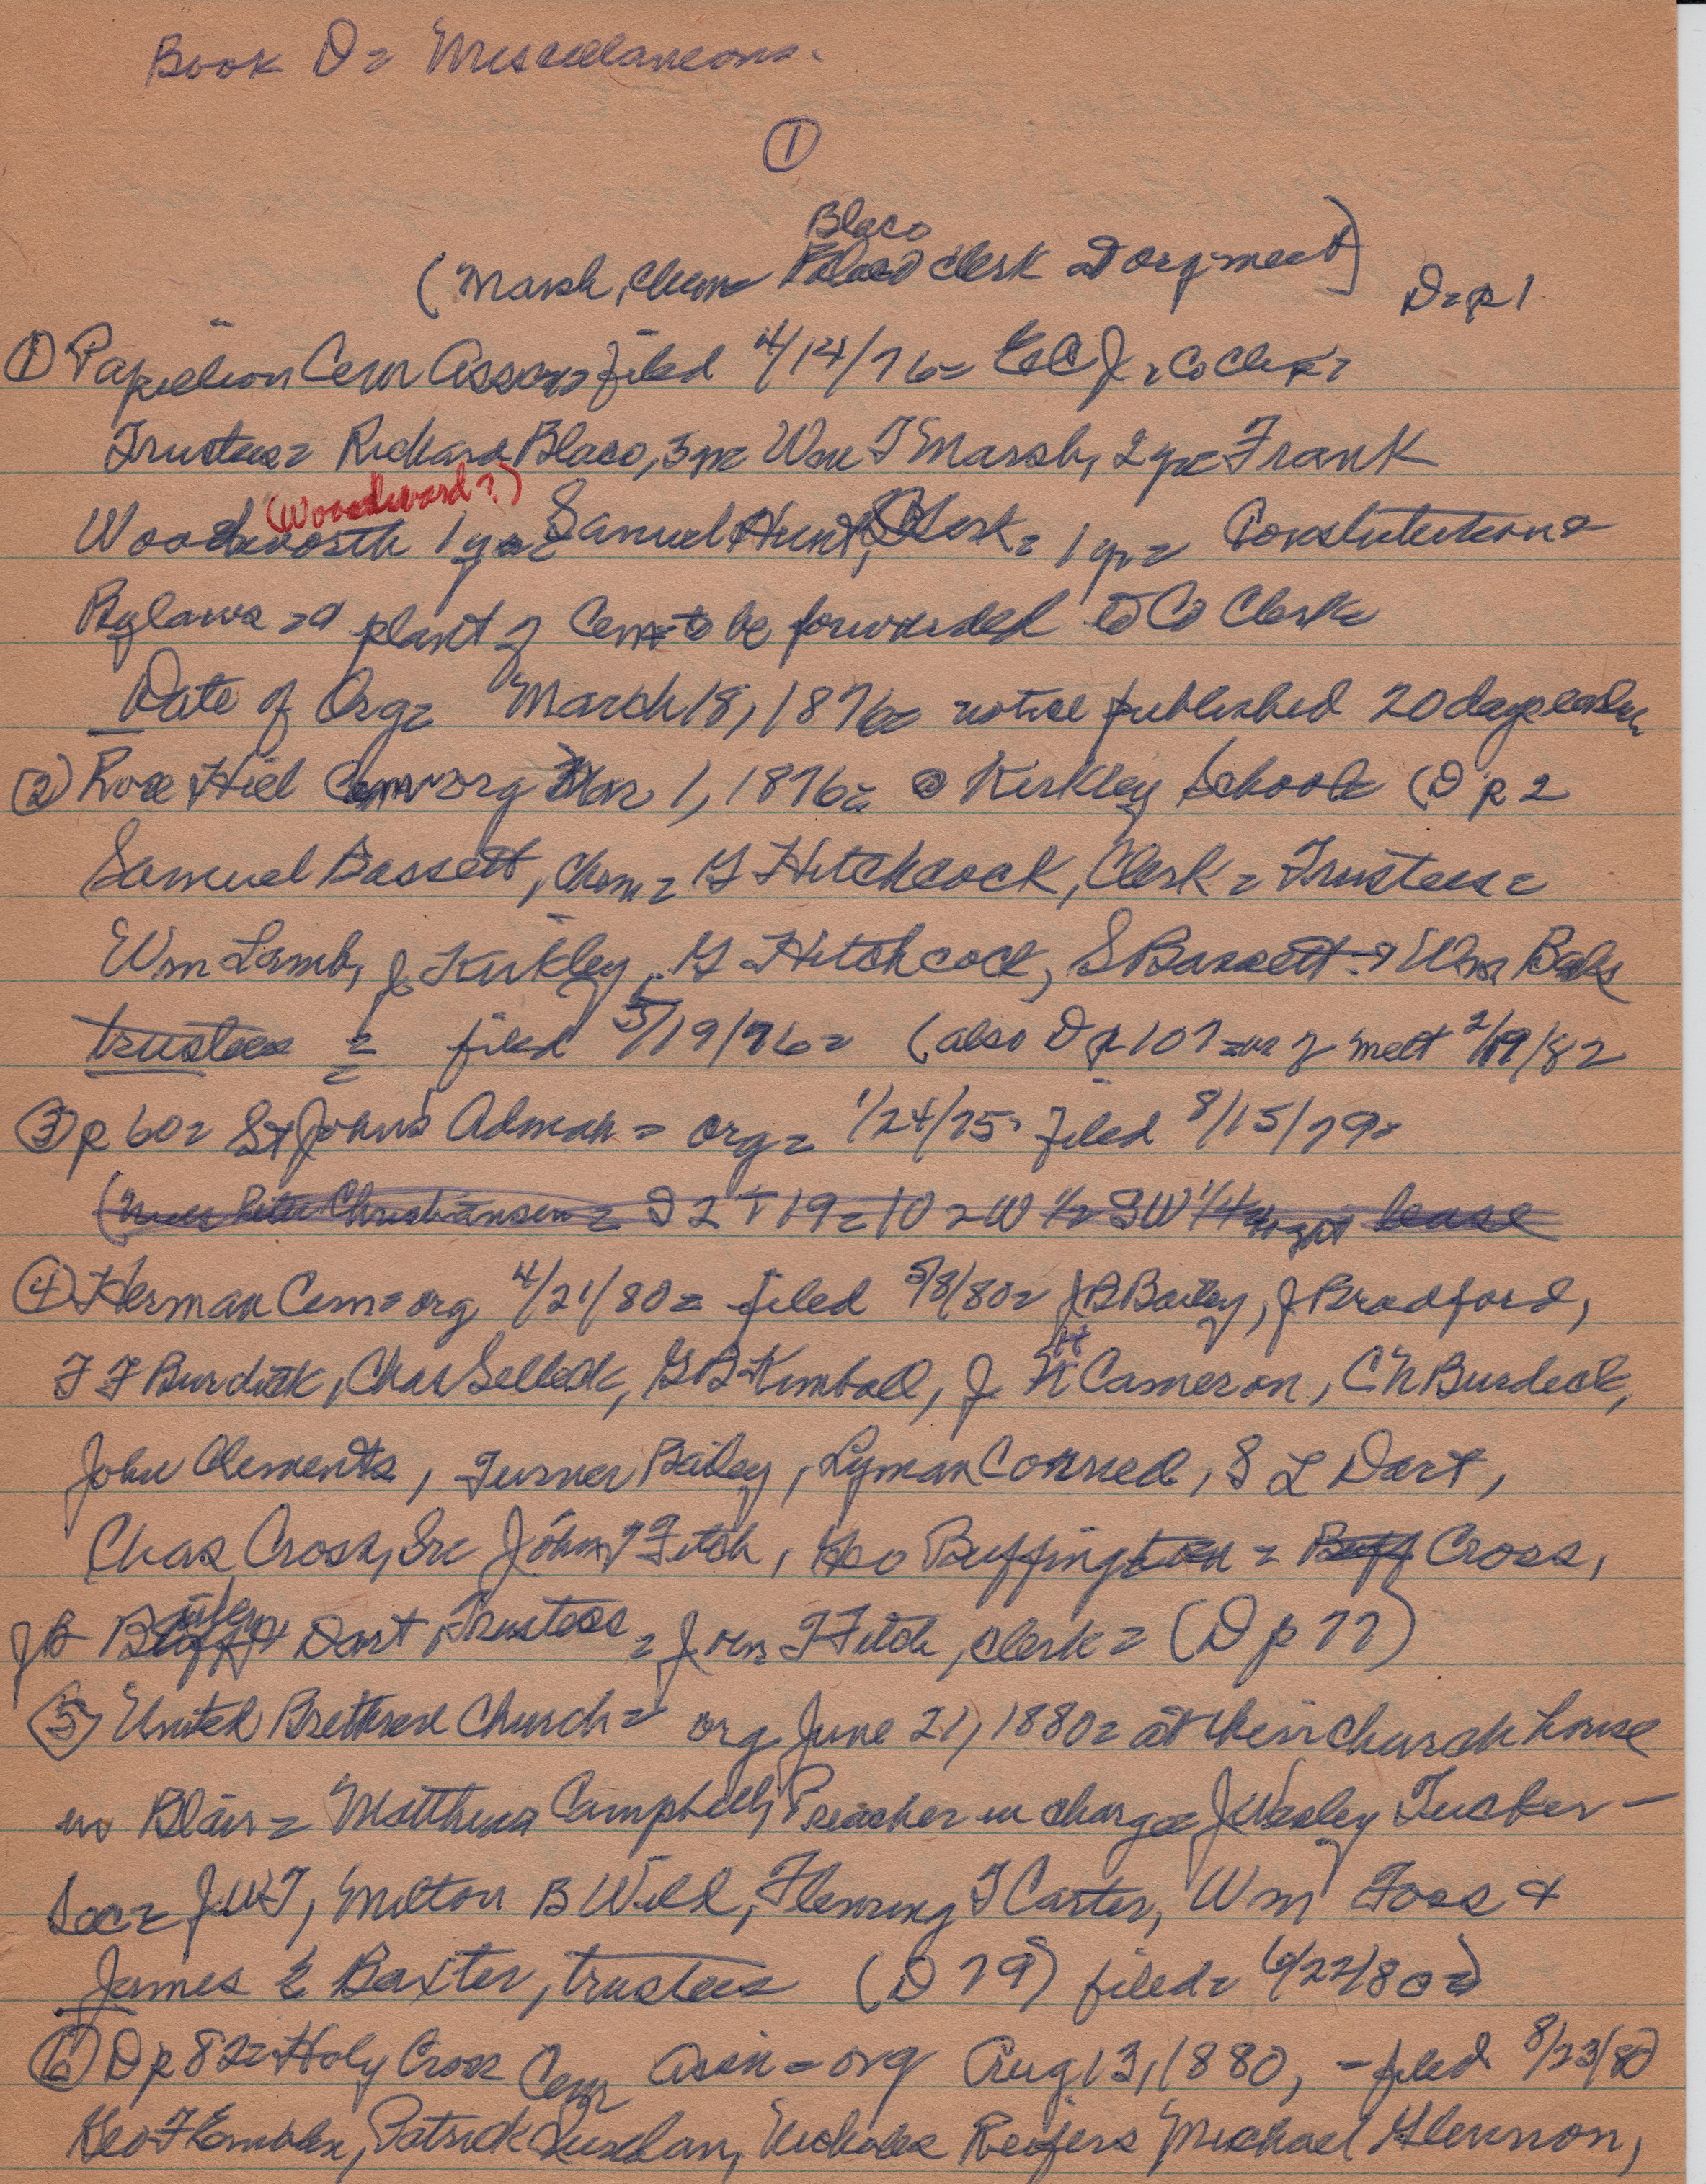 Book D= Miscellaneous.
①
Blaco
(Marsh, Chmn= Clerk at org. meet) D=p1
① Papillion Cem Assoc= filed 4/14/76= Co Clerk=
Trustees= Richard Blaco, 3 yr= Wm F Marsh, 2 yr= Frank
(Woodward?)
Woodworth 1 yr= Samuel Hunt, Clerk= 1 yr= Constitution &
Bylaws = a plat of Cem to be forwarded to Co Clerk
Date of Org= March 18, 1876= notice published 20 days earlier
② Rose Hill Cem org Mar 1, 1876= @ Kirkley School= (D p 2
Samuel Bassett, Chm= G Hitchcock, Clerk= Trustees=
Wm Lamb, J Kirkley, G Hitchcock, S Bassett & Wm
trustees = filed 5/19/76= (also D p 107= of meet 2/19/82
③ p 60= St John's Admah= org= 1/24/75= filed 8/15/79=
( Peter Christiansen= S 2 T 19= 10= W 1/2 SW 1/4 lease
④ Herman Cem= org 4/21/80= filed 5/8/80= J B Bailey, J Bradford,
F F Burdick, Chas Selleck, G B Kimball, J H Cameron, C N Burdick,
John Clements, Turner Bailey, Lyman Conned, S L Dart,
Chas Cross, Sr= John F Fitch, Geo Buffington= Buff Cross,
J B Bailey & Dart, Trustees= John F Fitch, clerk= (D p 77)
⑤ United Brethren Church= org June 21, 1880= at their church house
in Blair= Matthew Campbell, Preacher in charge= J Wesley Tucker -
Sec= JWT, Milton B Wild, Fleming T Carter, Wm Foss &
James E Baxter, trustees (D 79) filed= 6/22/80=)
⑥ D p 82= Holy Cross Cem Assn= org Aug 13, 1880, = filed 8/23/80
Geo F Patrick Quinlan, Nicholas Reifers Michael Glennon,